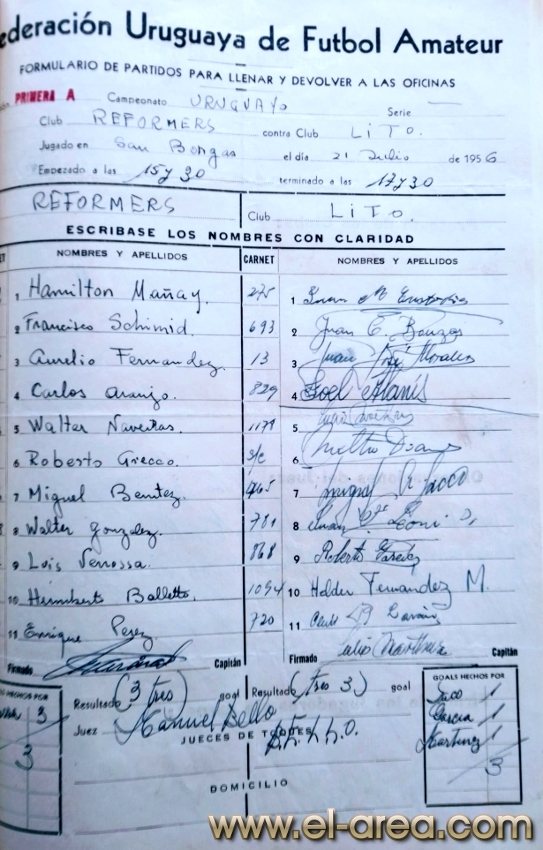 ederación Uruguaya de Futbol Amateur
FORMULARIO DE PARTIDOS PARA LLENAR Y DEVOLVER A LAS OFICINAS
PRIMERA A Campeonato URUGUAYO Serie —
Club REFORMERS contra Club LITO.
Jugado en San Borgas el día 21 Julio de 1956
Empezado a las 15 y 30 terminado a las 17 y 30
REFORMERS Club LITO.
ESCRIBASE LOS NOMBRES CON CLARIDAD
ET NOMBRES Y APELLIDOS CARNET NOMBRES Y APELLIDOS
1 Hamilton Mañay. 275 1
2 Francisco Schimid. 693 2 Juan C. Bouzas
3 Aurelio Fernandez. 13 3 Juan José Morales
4 Carlos Araujo. 829 4 Joel Alanis
5 Walter Naveiras. 1171 5
6 Roberto Grecco. s/c 6
7 Miguel Benitez. 7
8 Walter Gonzalez. 781 8
9 Luis Verrossa. 868 9 Roberto García
10 Humberto Balletto. 1094 10 Helder Fernandez M.
11 Enrique Perez. 720 11
Julio Martinez
Firmado Capitán Firmado Capitán
HECHOS POR Resultado (3 tres) goal Resultado (tres 3) goal GOALS HECHOS POR
3 Juez Manuel Bello Saco 1
JUECES DE TOQUES Garcia 1
Martinez 1
3 3
DOMICILIO
www.el-area.com